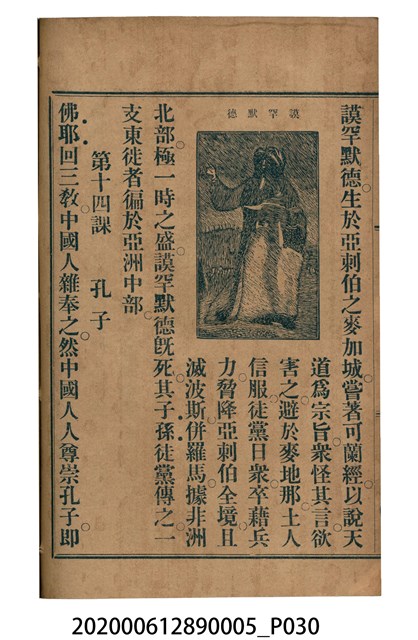 謨罕默德生於亞剌伯之麥加城。嘗著可蘭經。以說天
謨罕默德
道爲宗旨。衆怪其言。欲
害之。避於麥地那。土人
信服。徒黨日衆。卒藉兵
力脅降亞剌伯全境。且
滅波斯。併羅馬。據非洲
北部。極一時之盛。謨罕默德旣死。其子孫徒黨傳之。一
支東徙者。徧於亞洲中部。
第十四課 孔子
佛耶回三敎。中國人雜奉之。然中國人人尊崇孔子。卽
202000612890005_P030